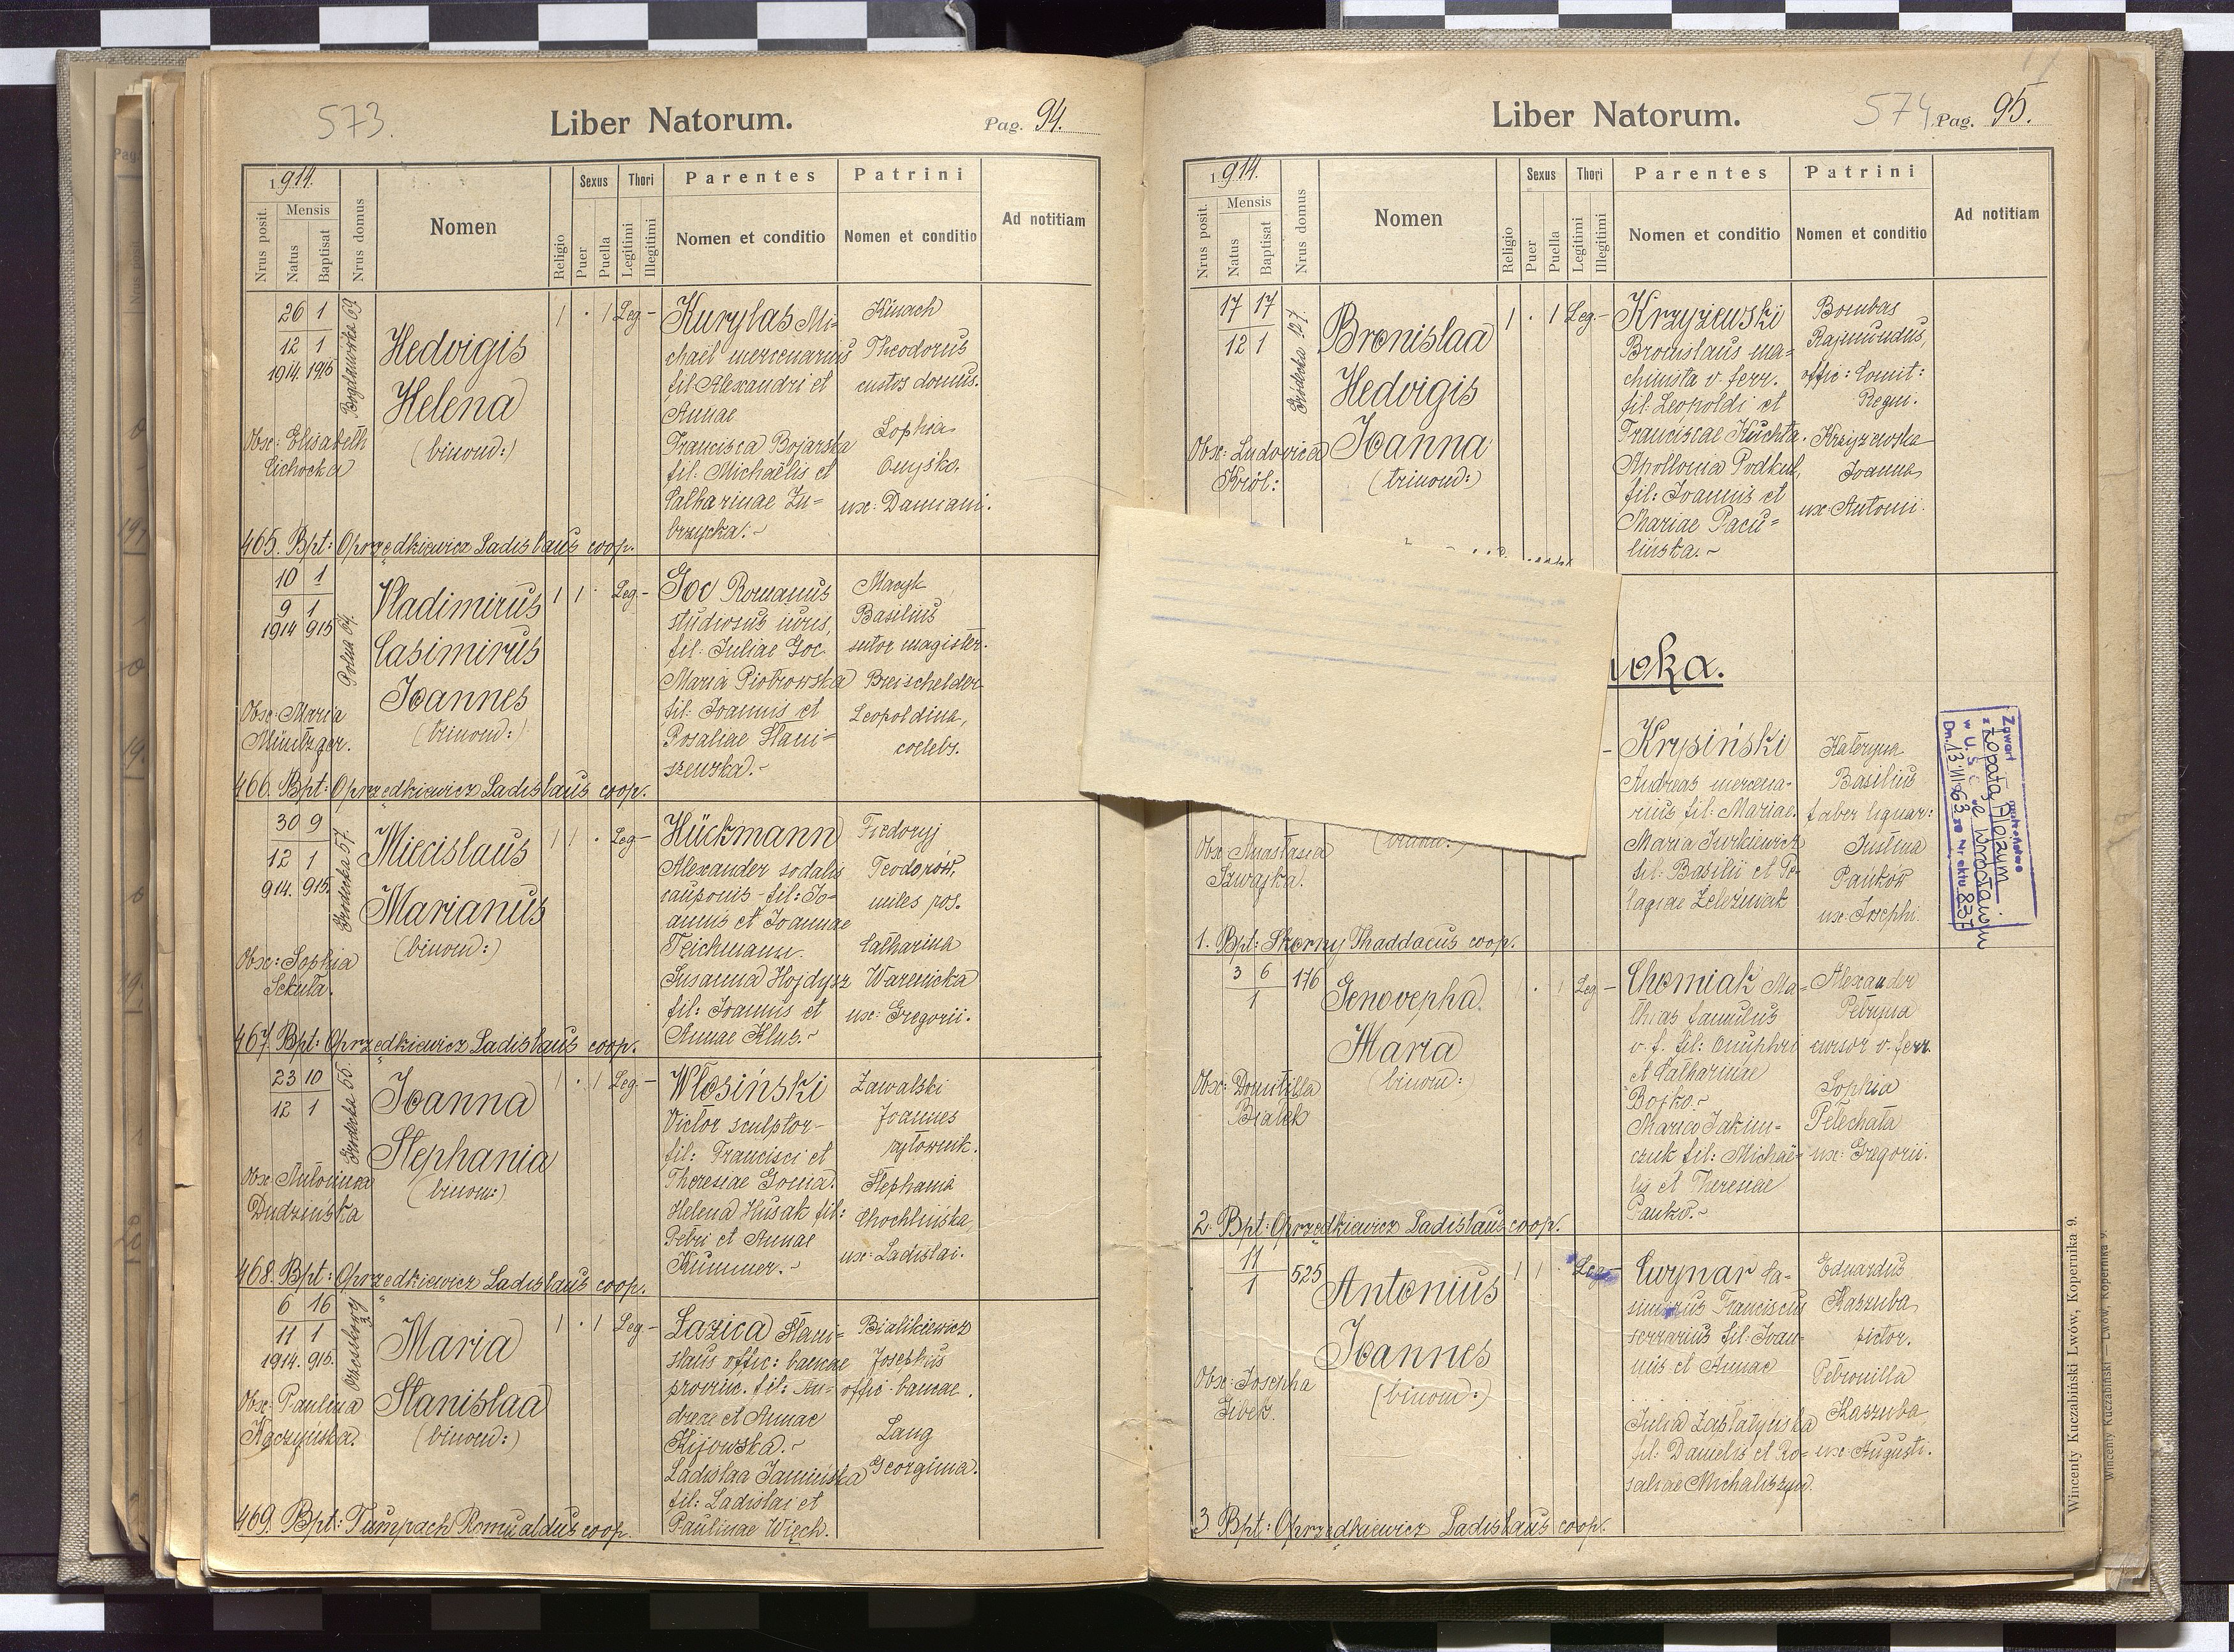 573.
Liber Natorum.
Pag. 94.
1914.
Nrus posit.
Mensis
Natus
Baptisat
Nrus domus
Nomen
Religio
Sexus
Puer
Puella
Thori
Legitimi
Illegitimi
Parentes
Nomen et conditio
Patrini
Nomen et conditio
Ad notitiam
26 1
12 1
1914. 1915
Bogdanowka 69
Hedvigis
Helena
(binom:)
1 · 1 Leg. –
Obse: Elisabeth
Cichocka
Kurylas Mi-
chaël mercenarius
fil Alexandri et
Annae
Francisca Bojarska
fil. Michaelis et
Catharinae Zu-
brzycka.~
Kinach
Theodorus
custos domus.
Sophia
Onysko.
ux: Damiani.
465. Bpt: Oprzędkiewicz Ladislaus coop.
10 1
9 1
1914 915
Polna 64.
Vladimirus
Casimirus
Joannes
(trinom:)
1 1 · Leg. –
Obse: Maria
Müntzger.
Goc Romanus
studiosus iuris,
fil: Juliae Goc
Maria Piotrowska
fil: Joannis et
Rosaliae Stani-
szewska.~
Macyk
Basilius
sutor magister.
Breischelder
Leopoldina,
coelebs.
466. Bpt: Oprzędkiewicz Ladislaus coop.
30 9
12 1
914. 915.
Grodecka 57.
Miecislaus
Marianus
(binom:)
1 1 · Leg –
Obse: Sophia
Sekuła.
Hückmann
Alexander sodalis
cauponis fil: Jo-
annis et Joannae
Teichmann.
Susanna Hojdysz
fil: Joannis et
Annae Klus.~
Fredoryj
Teodorów,
miles ros.
Catharina
Warenicka
ux: Gregorii.
467. Bpt: Oprzędkiewicz Ladislaus coop.
23 10
12 1
Grodecka 55
Joanna
Stephania
(binom:)
1 · 1 Leg. –
Obse: Antonina
Dudzińska
Włosiński
Victor sculptor
fil: Francisci et
Theresiae Gonia.
Helena Husak fil:
Petri et Annae
Kummer.~
Zawalski
Joannes
rytownik.
Stephania
Chochlińska,
ux: Ladislai.
468. Bpt: Oprzędkiewicz Ladislaus coop.
6 16
11 1
1914. 915.
Maria
Stanislaa
(binom:)
1 · 1 Leg. –
Obse: Paulina
Kaczyńska.
Lazica Stani-
slaus offic: bancae
provinc. fil: An-
dreae et Annae
Kijowska.~
Ladislaa Janińska
fil: Ladislai et
Paulinae Więch.
Bialikiewicz
Josephus
offic. bancae.
Lang
Georgina.
469. Bpt: Tumpach Romualdus coop.
Liber Natorum.
574.
Pag. 95.
1914.
Nrus posit.
Mensis
Natus
Baptisat
Nrus domus
Nomen
Religio
Sexus
Puer
Puella
Thori
Legitimi
Illegitimi
Parentes
Nomen et conditio
Patrini
Nomen et conditio
Ad notitiam
17 17
12 1
Grodecka 127.
Bronislaa
Hedvigis
Joanna
(trinom:)
1 · 1 Leg. –
Obse: Ludovica
Król:
Krzyżewski
Bronislaus ma-
chinista v. ferr.
fil: Leopoldi et
Franciscae Kuchta.
Apollonia Podkul,
fil: Joannis et
Mariae Pacu-
lińska.~
Bombas
Rajmundus,
offic: Comit:
Regni.
Krzyżewska
Joanna
ux: Antonii.
wka.
Krysiński
Andreas mercena-
rius fil: Mariae.
Maria Jurkiewicz
fil: Basilii et Pe-
lagiae Żeleźniak
Kateryna
Basilius
faber lignar:
Justina
Pańków
ux: Josephi.
Zawarł małżeństwo
z Łopatą
w U.S.C. we Wrocławiu
Dn. 13.VI.1963 za Nr aktu 837
(binom:)
Obse: Anastasia
Szwajka.
1. Bpt: Skorny Thaddaeus coop.
3 6
1
176
Genovepha
Maria
(binom:
1 · 1 Leg –
Obse: Domitilla
Białek
Chomiak Ma-
thias famulus
v. f. fil: Onuphri
et Catharinae
Bojko.~
Maria Jakim-
czuk fil: Michaë-
lis et Theresiae
Pańko.~
Alexander
Petryna
cursor v. ferr.
Sophia
Pełechata
ux: Gregorii.
2. Bpt: Oprzędkiewicz Ladislaus coop.
11
1
525
Antonius
Joannes
(binom:)
1 1 · Leg –
Obse: Josepha
Cwynar Ca-
simirus Franciscus
serrarius fil: Joan-
nis et Annae
Julia Zaplatyńska
fil: Danielis et Ro-
saliae Michaliszyn.
Eduardus
Kaszuba
pictor.
Petronilla
Kaszuba,
ux: Augusti.
3 Bpt: Oprzędkiewicz Ladislaus coop.
Wincenty Kuczabiński Lwów, Kopernika 9.
Wincenty Kuczabiński — Lwów, Kopernika 9.